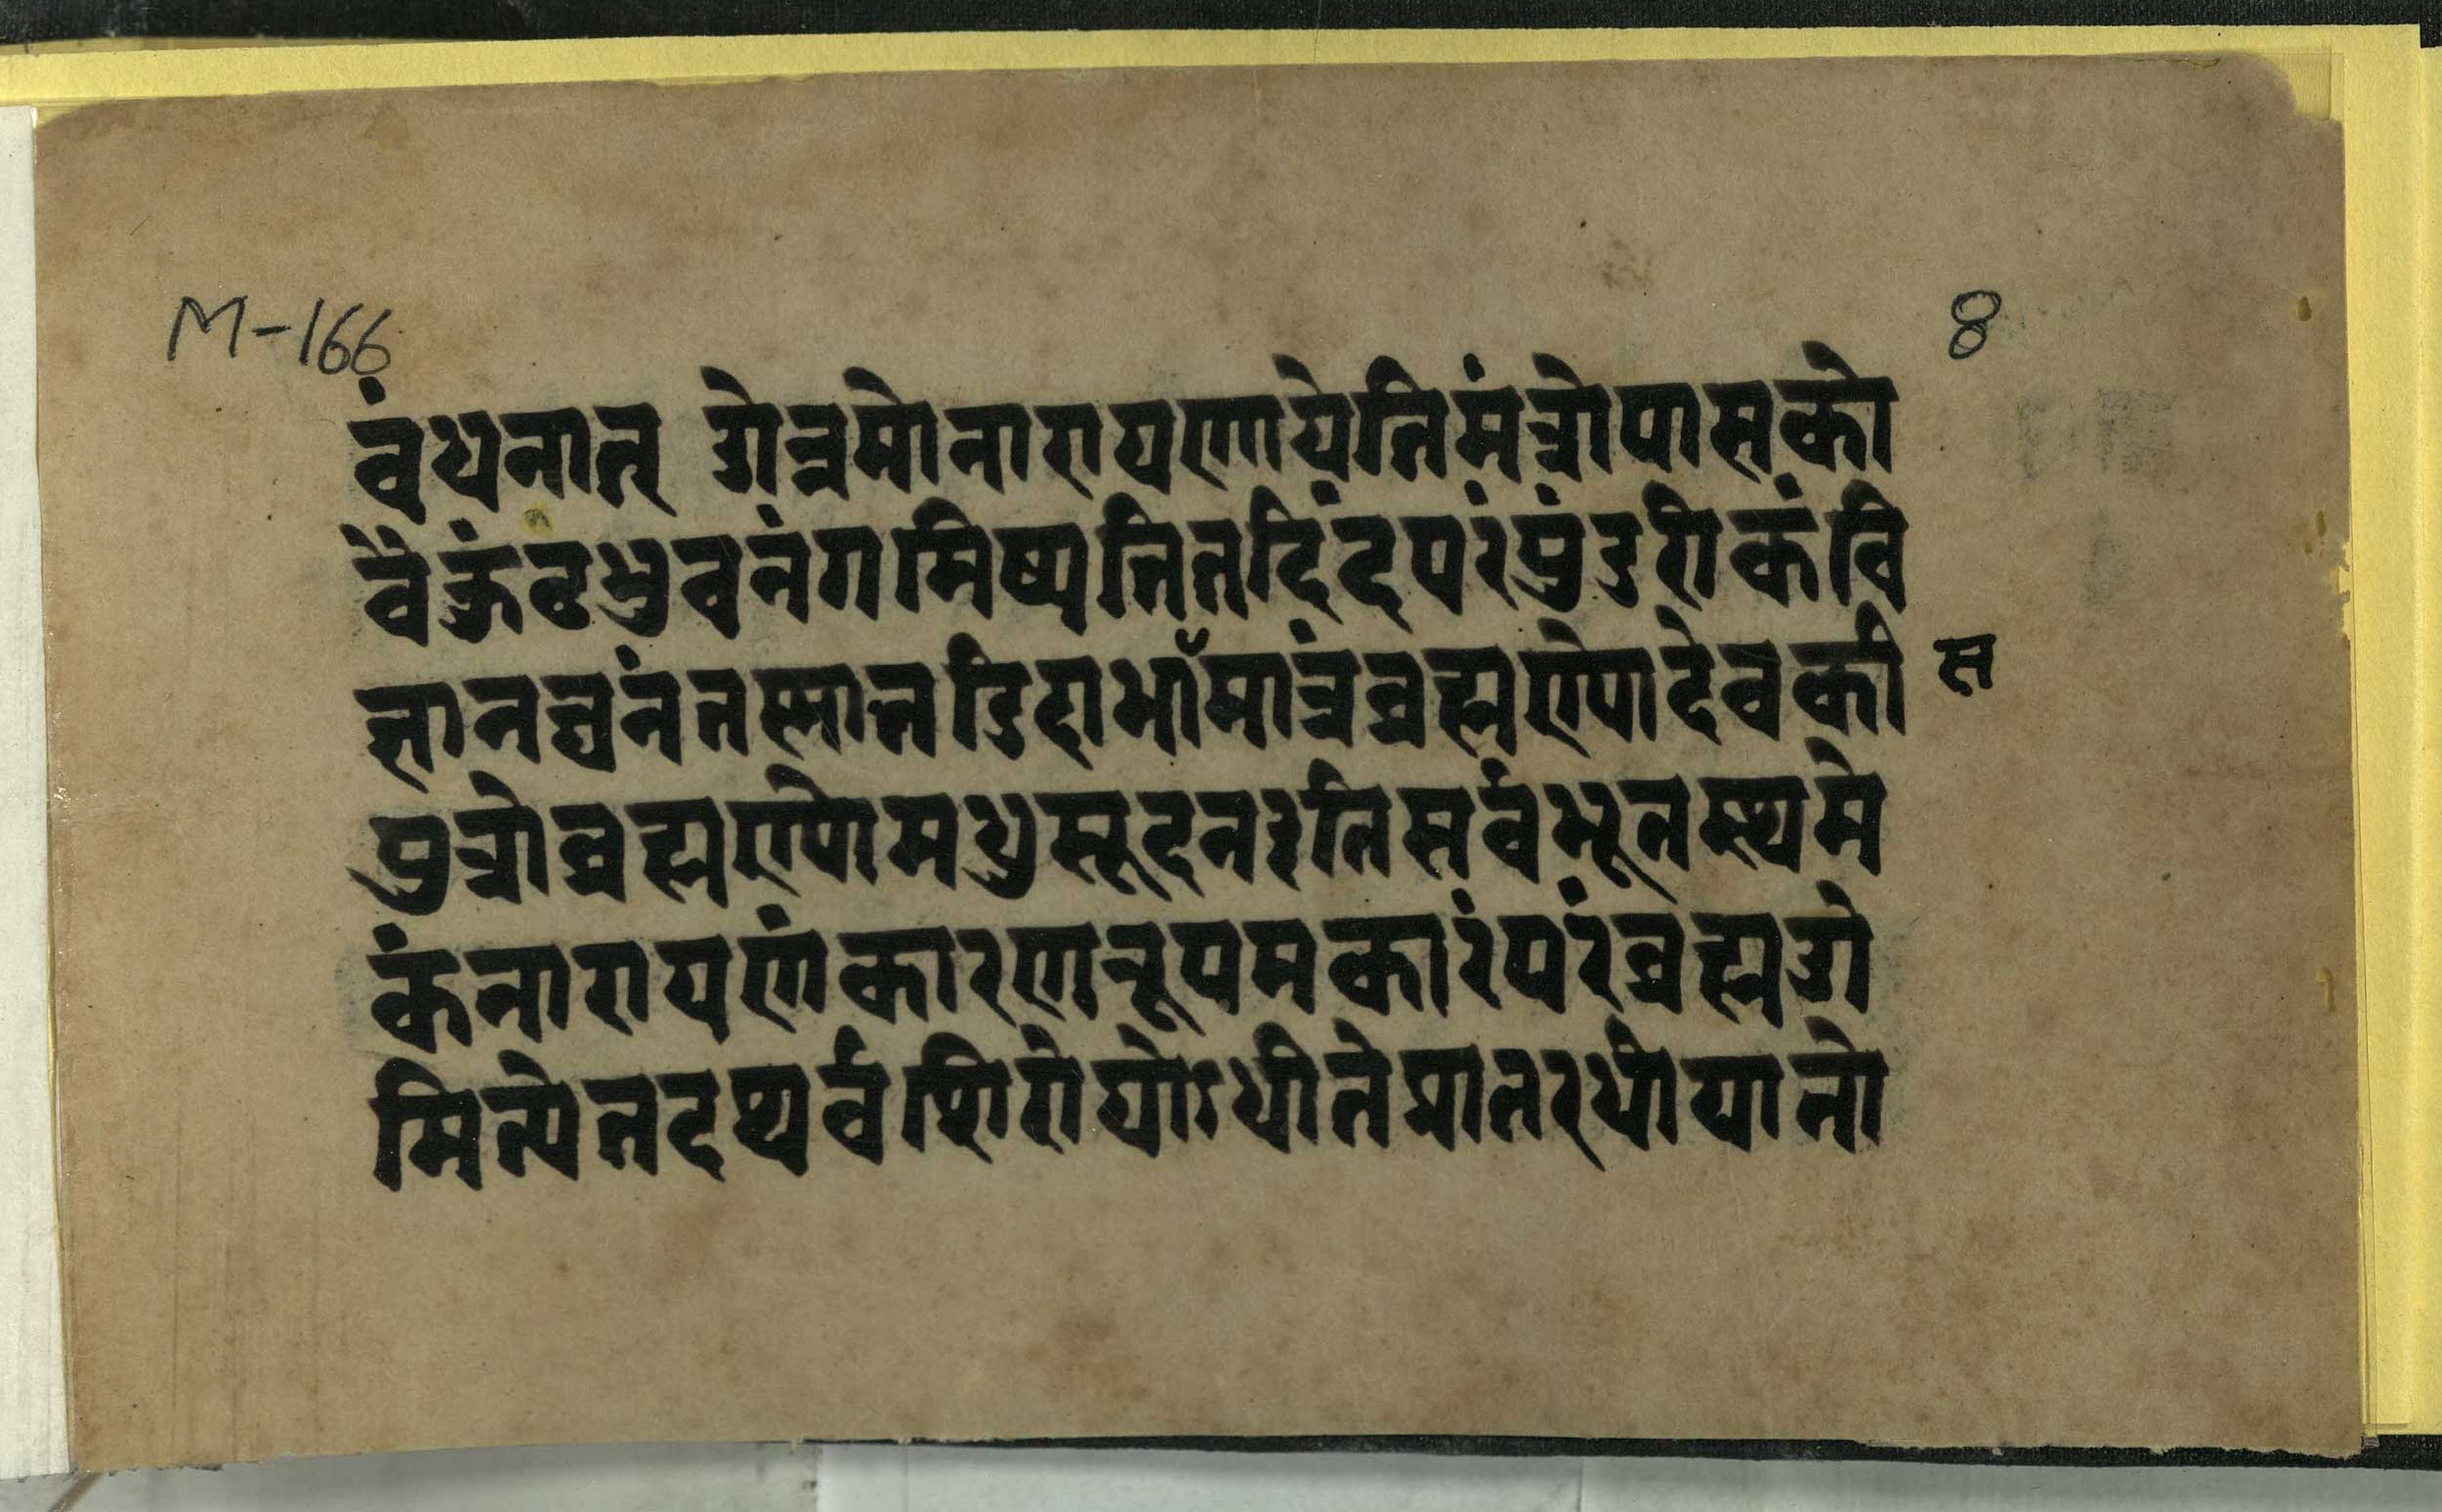 M-166
8
वंधनात् ओन्नमोनारायणायेतिमंत्रोपासको
वैकुंठभुवनंगमिष्यतितदिंदपरंपुंडरीकंवि
ज्ञानघनंतस्मात्तडिदाभाँमात्रंब्रह्मण्योदेवकी
स
पुत्रोब्रह्मण्योमधुसूदनःतिसर्वभूतस्थमे
कंनारायणंकारणरूपमकारंपरंब्रह्मओ
मित्येतदथर्वशिरोयोऽधीतेप्रातरधीयानो